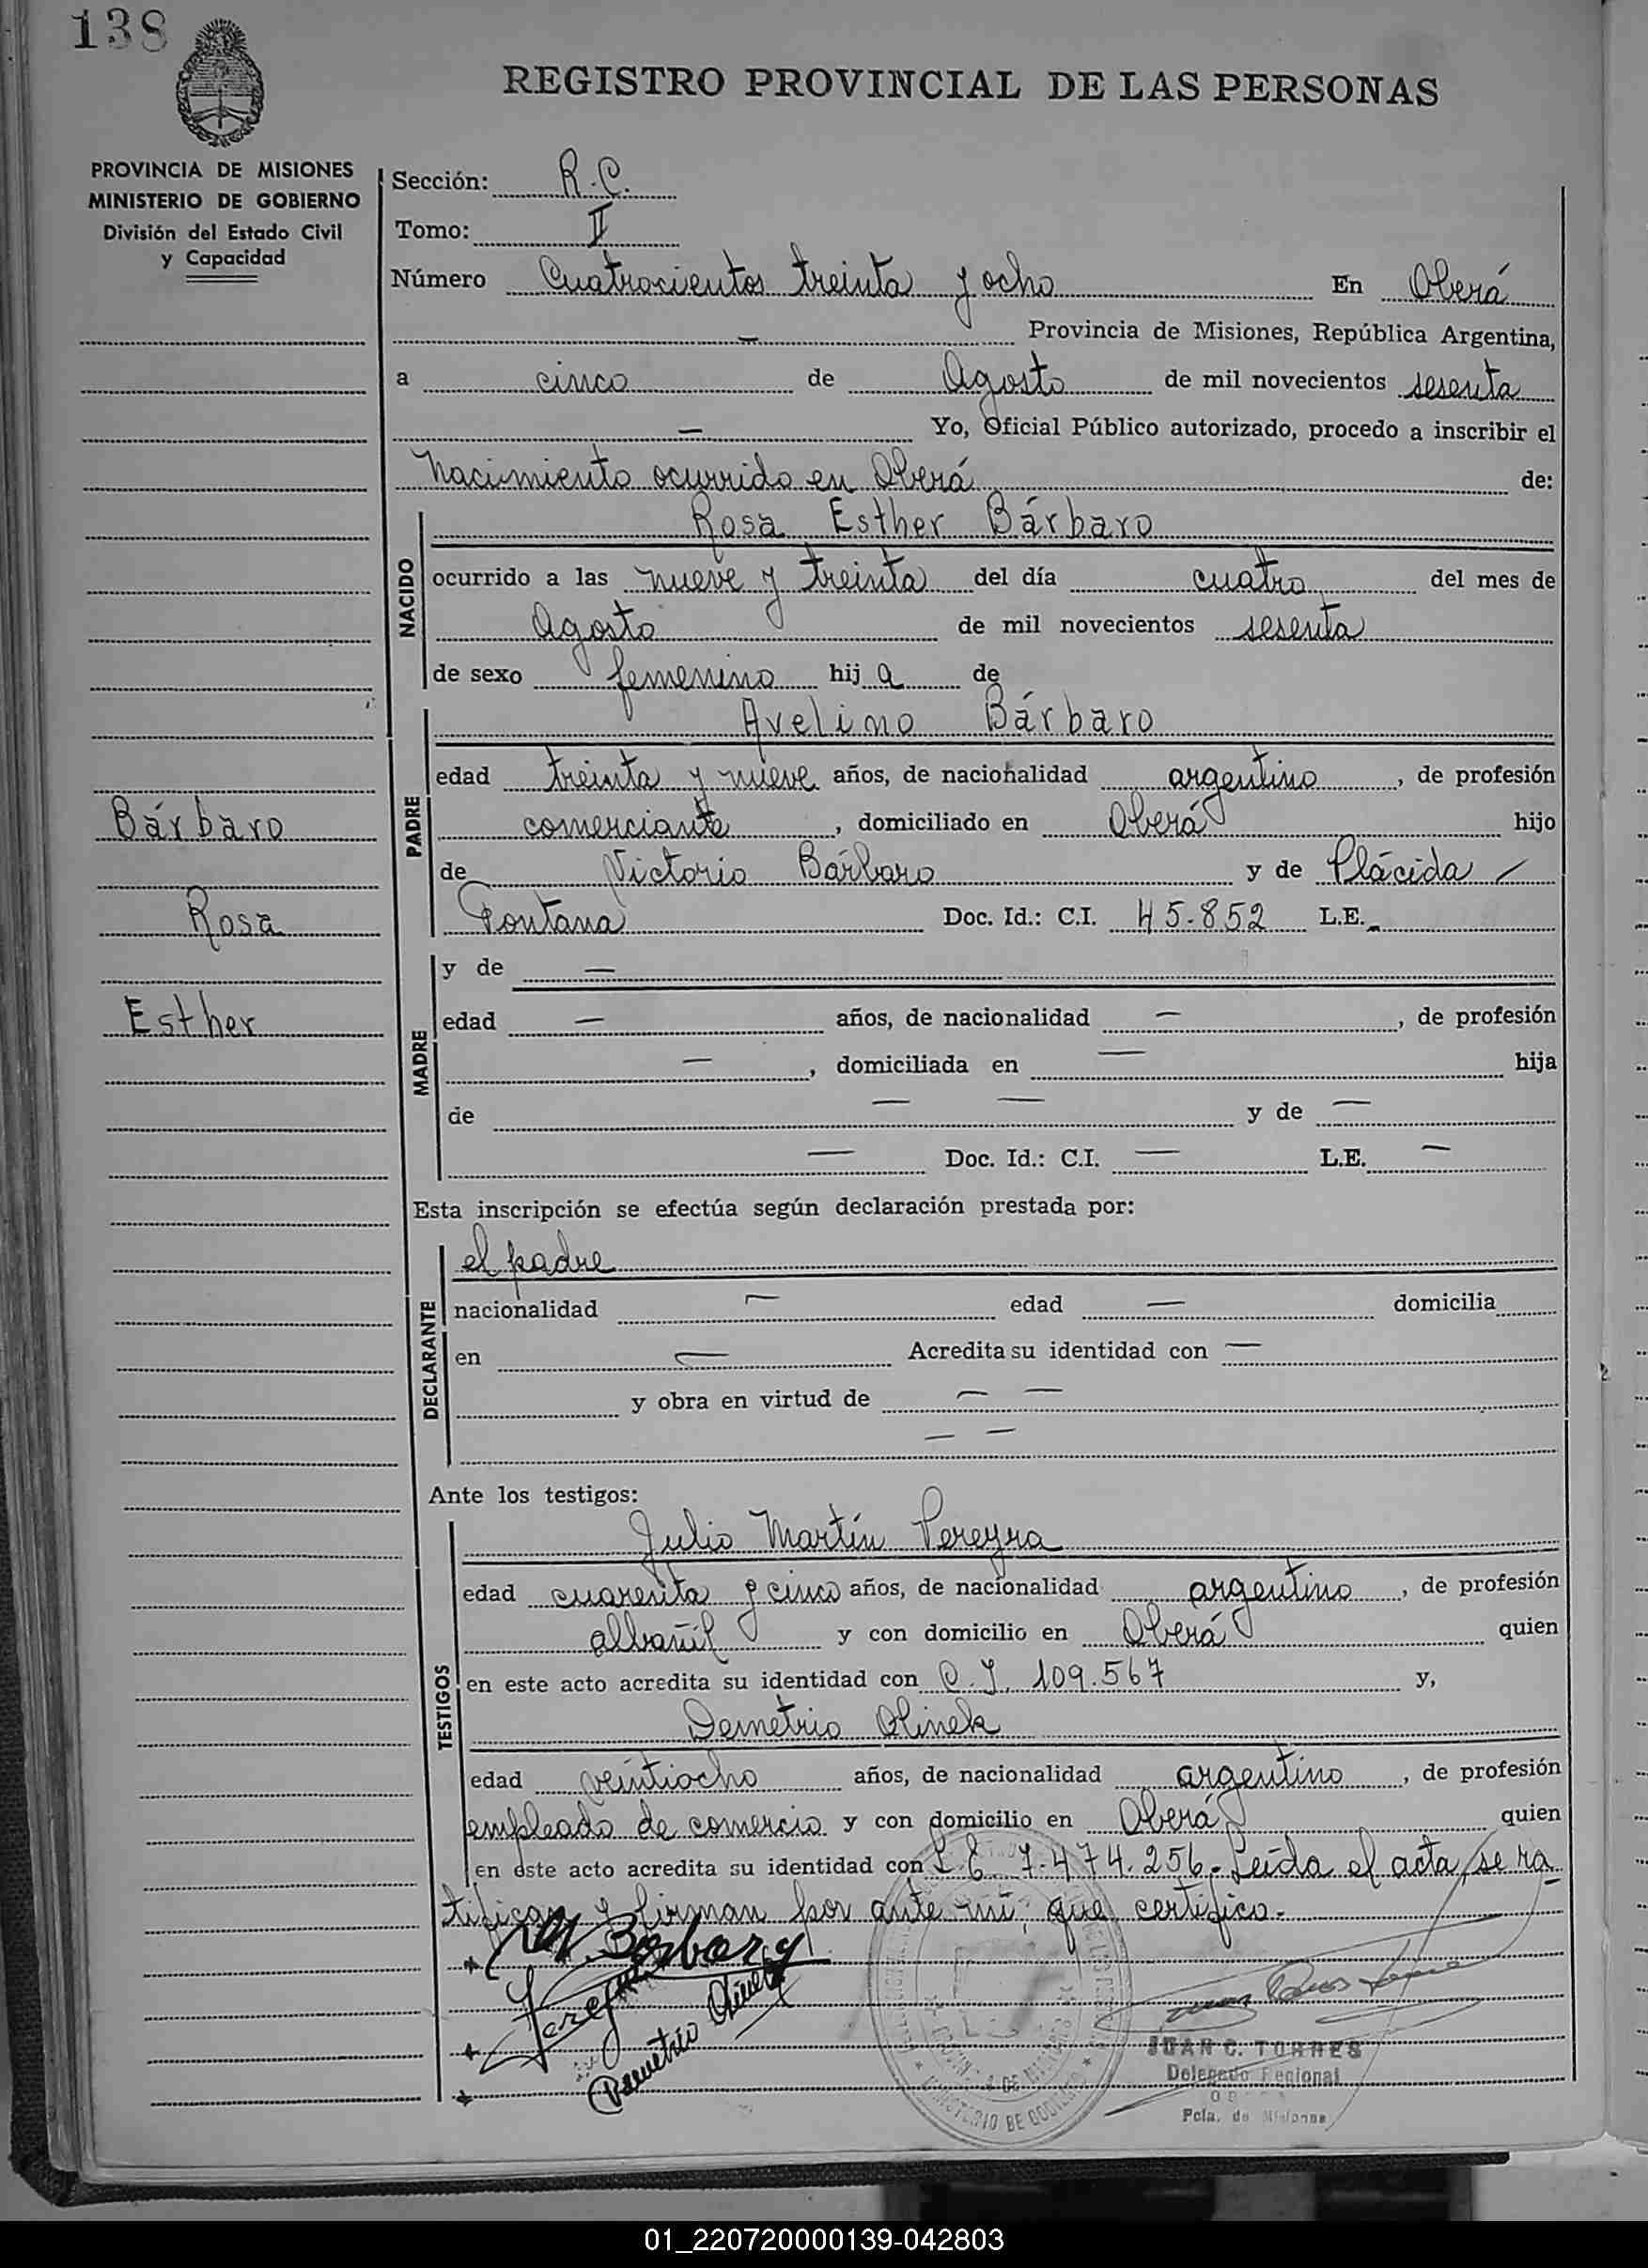 138
REGISTRO PROVINCIAL DE LAS PERSONAS
PROVINCIA DE MISIONES
MINISTERIO DE GOBIERNO
División del Estado Civil
y Capacidad
Sección: R.C.
Tomo: II
Número Cuatrocientos treinta y ocho En Oberá
— Provincia de Misiones, República Argentina,
a cinco de Agosto de mil novecientos sesenta
— Yo, Oficial Público autorizado, procedo a inscribir el
Nacimiento ocurrido en Oberá de:
NACIDO
Rosa Esther Bárbaro
ocurrido a las nueve y treinta del día cuatro del mes de
Agosto de mil novecientos sesenta
de sexo femenino hij a de
PADRE
Avelino Bárbaro
edad treinta y nueve años, de nacionalidad argentino, de profesión
comerciante, domiciliado en Oberá hijo
de Victorio Bárbaro y de Plácida
Fontana Doc. Id.: C.I. 45.852 L.E. -
Bárbaro
Rosa
Esther
MADRE
y de —
edad — años, de nacionalidad —, de profesión
—, domiciliada en — hija
de — — y de —
— Doc. Id.: C.I. — L.E. —
Esta inscripción se efectúa según declaración prestada por:
DECLARANTE
el padre
nacionalidad — edad — domicilia
en — Acredita su identidad con —
y obra en virtud de — —
— —
Ante los testigos:
TESTIGOS
Julio Martín Pereyra
edad cuarenta y cinco años, de nacionalidad argentino, de profesión
albañil y con domicilio en Oberá quien
en este acto acredita su identidad con C.I. 109.567 y,
Demetrio Olinek
edad veintiocho años, de nacionalidad argentino, de profesión
empleado de comercio y con domicilio en Oberá quien
en este acto acredita su identidad con L.E. 7.474.256. Leída el acta, se ra
tifican y firman por ante mí, que certifico.
Barbaro
Demetrio Olinek
JUAN C. TORRES
Delegado Regional
Pcia. de Misiones
01_220720000139-042803